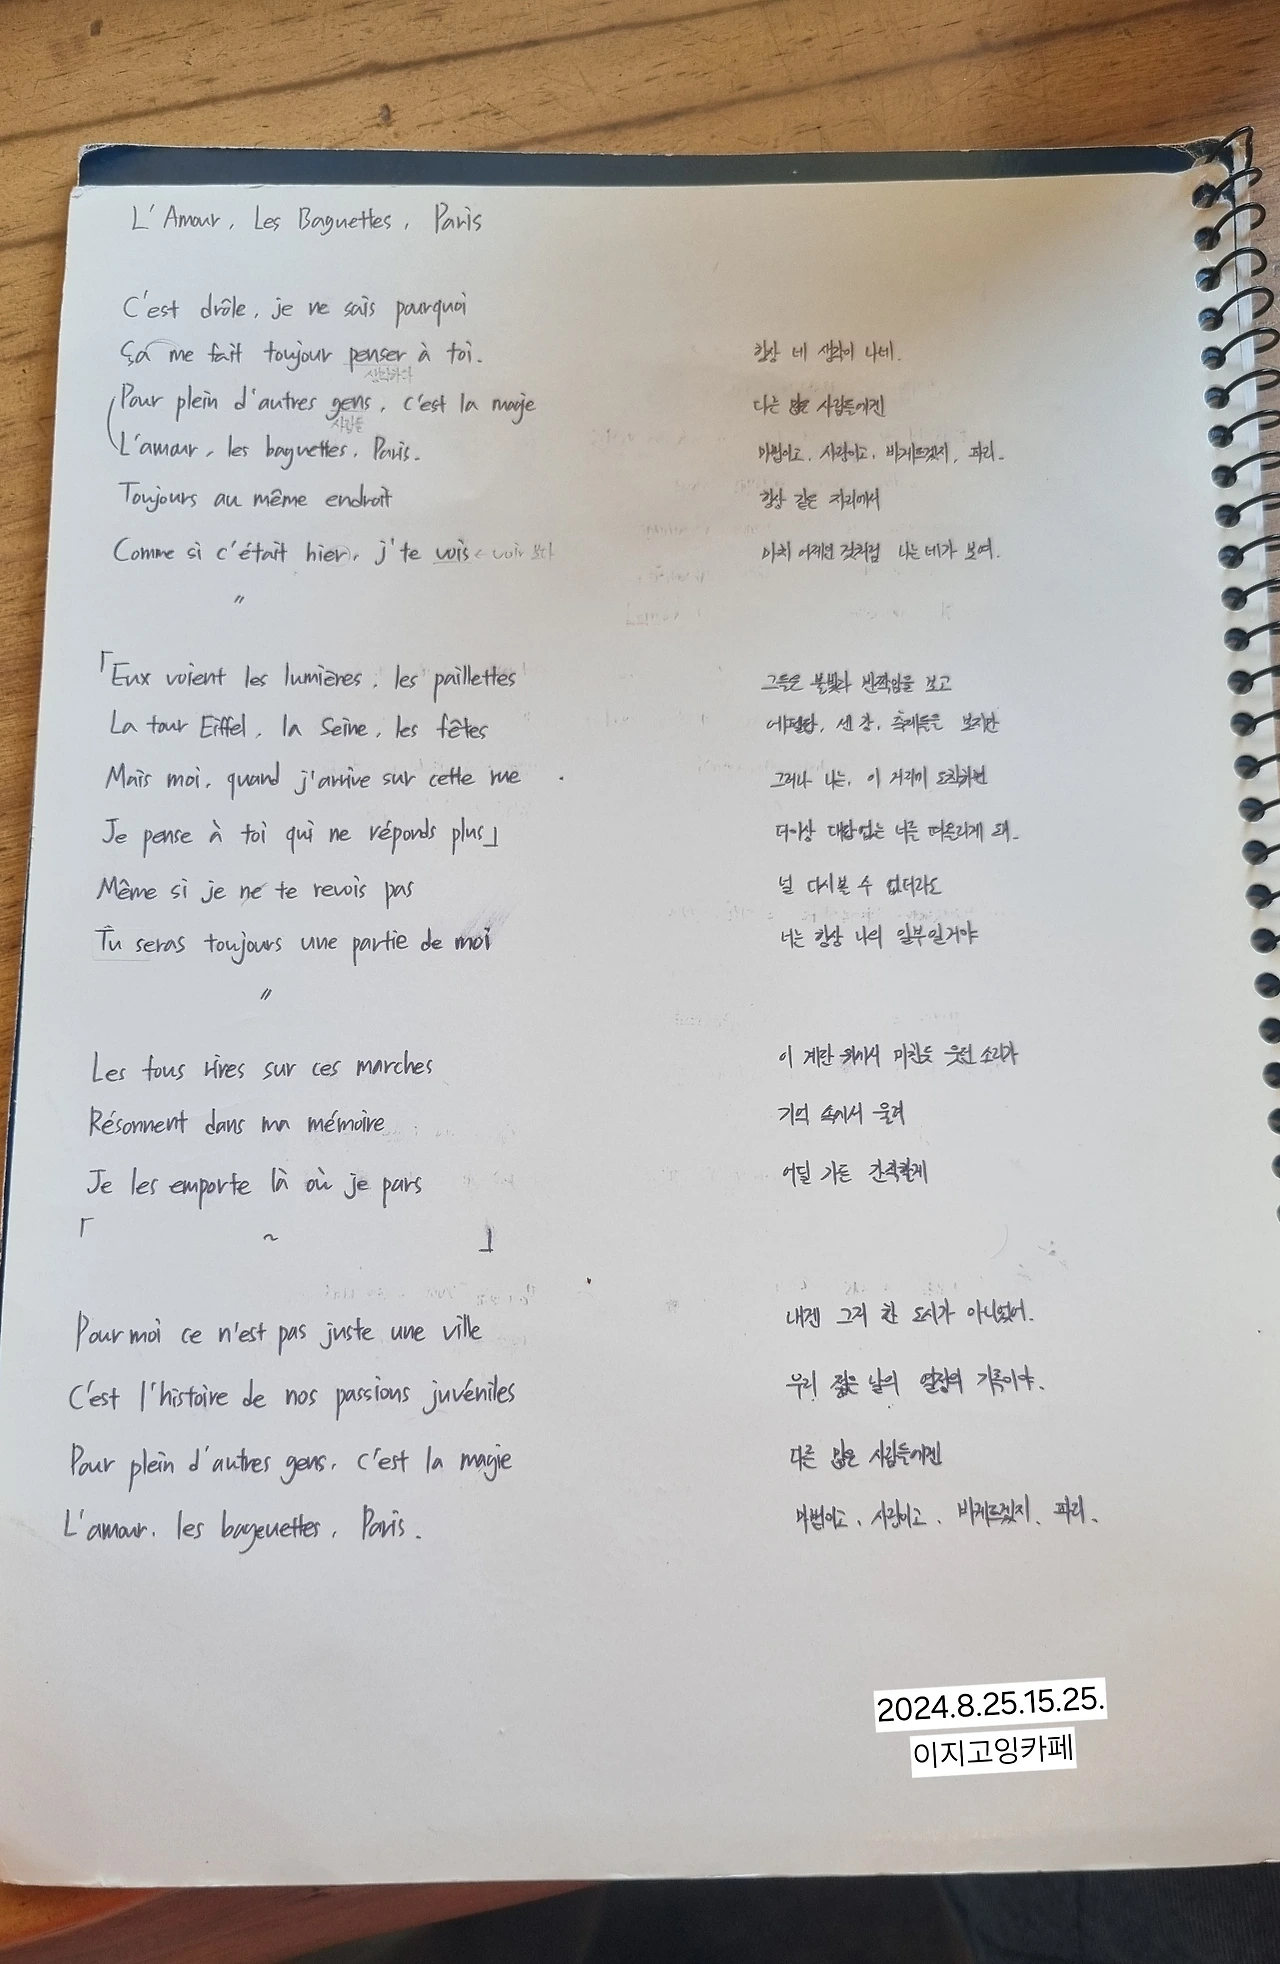 L'Amour, Les Baguettes, Paris
C'est drôle, je ne sais pourquoi
Ça me fait toujour penser à toi. 항상 네 생각이 나네.
생각하다
Pour plein d'autres gens, c'est la magie 다른 많은 사람들에겐
사람들
L'amour, les baguettes, Paris. 마법이고, 사랑이고, 바게트겠지, 파리.
Toujours au même endroit 항상 같은 자리에서
Comme si c'était hier, j'te vois < voir 보다 마치 어제인 것처럼 나는 네가 보여.
〃
「Eux voient les lumières, les paillettes 그들은 불빛과 반짝임을 보고
La tour Eiffel, la Seine, les fêtes 에펠탑, 센 강, 축제들을 보지만
Mais moi, quand j'arrive sur cette rue 그러나 나는, 이 거리에 도착하면
Je pense à toi qui ne réponds plus」 더이상 대답없는 너를 떠올리게 돼.
Même si je ne te revois pas 널 다시볼 수 없더라도
Tu seras toujours une partie de moi 너는 항상 나의 일부일거야
〃
Les fous rires sur ces marches 이 계단 위에서 미친듯 웃던 소리가
Résonnent dans ma mémoire 기억 속에서 울려
Je les emporte là où je pars 어딜 가든 간직할게
「 ~ 」
Pour moi ce n'est pas juste une ville 내겐 그저 한 도시가 아니었어.
C'est l'histoire de nos passions juvéniles 우리 젊은 날의 열정의 기록이야.
Pour plein d'autres gens, c'est la magie 다른 많은 사람들에겐
L'amour, les bageuettes, Paris. 마법이고, 사랑이고, 바게트겠지, 파리.
2024.8.25.15.25.
이지고잉카페